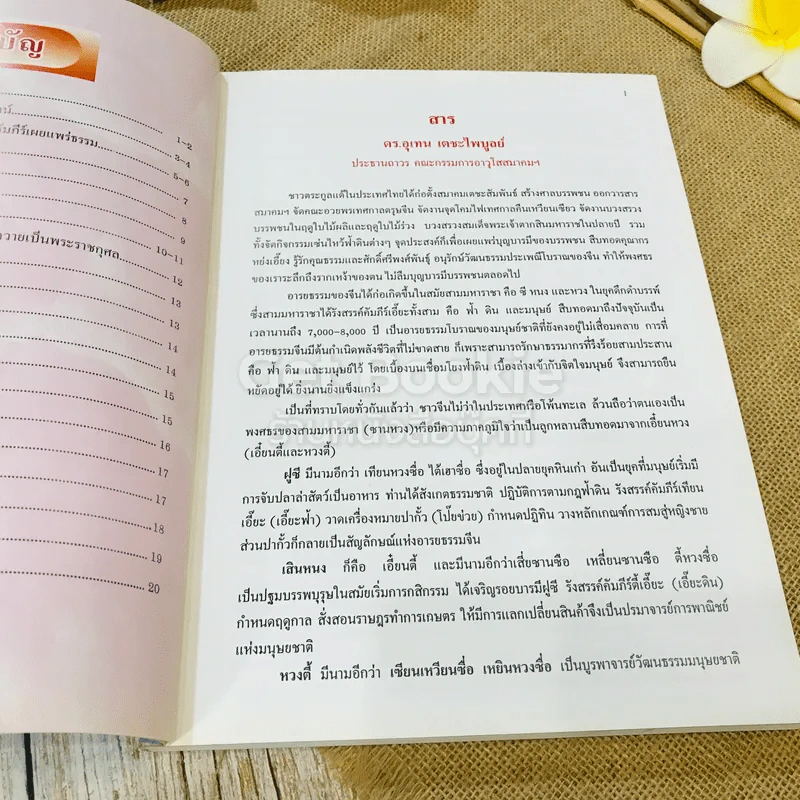 บัญ
1-2
คัมภีร์เผยแพร่ธรรม 3-4
5-6
7
8
9
10-11
ถวายเป็นพระราชกุศล
12
13
13
14
14
15
15
16
17
17
18
19
20
1
สาร
ดร.อุเทน เตชะไพบูลย์
ประธานถาวร คณะกรรมการอาวุโสสมาคมฯ
ชาวตระกูลแต้ในประเทศไทยได้ก่อตั้งสมาคมเตชะสัมพันธ์ สร้างศาลบรรพชน ออกวารสาร
สมาคมฯ จัดคณะอวยพรเทศกาลตรุษจีน จัดงานจุดโคมไฟเทศกาลหืนเหวียนเซียว จัดงานบวงสรวง
บรรพชนในฤดูใบไม้ผลิและฤดูใบไม้ร่วง บวงสรวงสมเด็จพระเจ้าตากสินมหาราชในปลายปี รวม
ทั้งจัดกิจกรรมเซ่นไหว้ฟ้าดินต่างๆ จุดประสงค์ก็เพื่อเผยแพร่บุญบารมีของบรรพชน สืบทอดคุณากร
หย่งเอี้ยง รู้รักคุณธรรมและศักดิ์ศรีพงศ์พันธุ์ อนุรักษ์วัฒนธรรมประเพณีโบราณของจีน ทำให้พงศธร
ของเราระลึกถึงรากเหง้าของตน ไม่ลืมบุญบารมีบรรพชนตลอดไป
อารยธรรมของจีนได้ก่อเกิดขึ้นในสมัยสามมหาราชา คือ ซี หนง และหวง ในยุคดึกดำบรรพ์
ซึ่งสามมหาราชาได้รังสรรค์คัมภีร์เอี๊ยะทั้งสาม คือ ฟ้า ดิน และมนุษย์ สืบทอดมาถึงปัจจุบันเป็น
เวลานานถึง 7,000-8,000 ปี เป็นอารยธรรมโบราณของมนุษย์ชาติที่ยังคงอยู่ไม่เสื่อมคลาย การที่
อารยธรรมจีนมีต้นกำเนิดพลังชีวิตที่ไม่ขาดสาย ก็เพราะสามารถรักษาธรรมากรที่รึงร้อยสามประสาน
คือ ฟ้า ดิน และมนุษย์ไว้ โดยเบื้องบนเชื่อมโยงฟ้าดิน เบื้องล่างเข้ากับจิตใจมนุษย์ จึงสามารถยืน
หยัดอยู่ได้ ยิ่งนานยิ่งแข็งแกร่ง
เป็นที่ทราบโดยทั่วกันแล้วว่า ชาวจีนไม่ว่าในประเทศหรือโพ้นทะเล ล้วนถือว่าตนเองเป็น
พงศธรของสามมหาราชา (ซานหวง)หรือมีความภาคภูมิใจว่าเป็นลูกหลานสืบทอดมาจากเอี๋ยนหวง
(เอี๋ยนตี้และหวงตี้)
ฝูซี มีนามอีกว่า เทียนหวงซื่อ ไต้เฮาซื่อ ซึ่งอยู่ในปลายยุคหินเก่า อันเป็นยุคที่มนุษย์เริ่มมี
การจับปลาล่าสัตว์เป็นอาหาร ท่านได้สังเกตธรรมชาติ ปฏิบัติการตามกฎฟ้าดิน รังสรรค์คัมภีร์เทียน
เอี๊ยะ (เอี๊ยะฟ้า) วาดเครื่องหมายปากั้ว (โป๊ยข่วย) กำหนดปฏิทิน วางหลักเกณฑ์การสมสู่หญิงชาย
ส่วนปากั้วก็กลายเป็นสัญลักษณ์แห่งอารยธรรมจีน
เสินหนง ก็คือ เอี๋ยนตี้ และมีนามอีกว่าเสี่ยซานซือ เหลี่ยนซานซือ ตี้หวงซื่อ
เป็นปฐมบรรพบุรุษในสมัยเริ่มการกสิกรรม ได้เจริญรอยบารมีฝูซี รังสรรค์คัมภีร์ตี้เอี๊ยะ (เอี๊ยะดิน)
กำหนดฤดูกาล สั่งสอนราษฎรทำการเกษตร ให้มีการแลกเปลี่ยนสินค้าจึงเป็นปรมาจารย์การพาณิชย์
แห่งมนุษยชาติ
หวงตี้ มีนามอีกว่า เซียนเหวียนซื่อ เหยินหวงซื่อ เป็นบูรพาจารย์วัฒนธรรมมนุษยชาติ
Get Bookie
ร้านหนังสือบุ๊คกี้